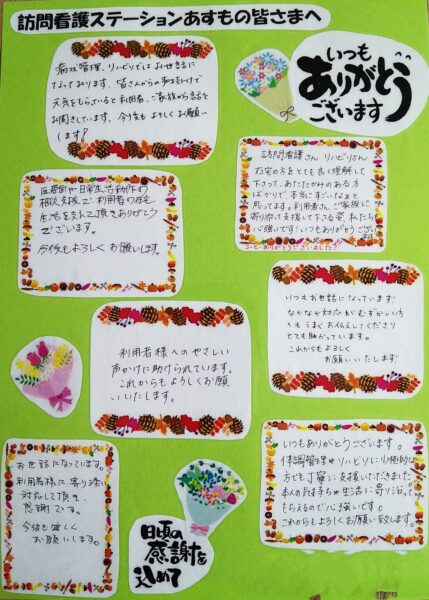 訪問看護ステーションあすもの皆さまへ
いつも
ありがとう
ございます
病状管理、リハビリではお世話に
なっております。皆さんからの声かけで
元気をもらっていると利用者、ご家族から話を
お聞きしています。今後もよろしくお願い
します!
訪問看護さん リハビリさん
在宅の方をとても良く理解して
下さって、あたたかみのある方
ばかりで、本当にすごいなぁと
思ってます。利用者さん、ご家族に
寄り添って支援して下さる姿、私たち
心強いです!いつもありがとうござい
ます
コーヒーありがとうございました!!
医療面や日常生活動作の
相談支援で、利用者の在宅
生活を支えて頂きありがとう
ございます。
今後もよろしくお願いします。
いつもお世話になっています!
なかなか対応がむずかしい方
へもうまくお伝えしてくださり
とても助かっています。
これからもよろしく
お願いいたします!
利用者様へのやさしい
声かけに助けられています。
これからもよろしくお願
いいたします。
いつもありがとうございます。
体調管理やリハビリに消極的な
方でも丁寧に支援いただきました
本人の気持ちや生活に寄り沿って
もらえるので心強いです。
これからもよろしくお願い致します。
お世話になっています。
利用者様に、寄り添い
対応して頂き、
感謝です。
今後も宜しく
お願いします。
日頃の
感謝を
込めて